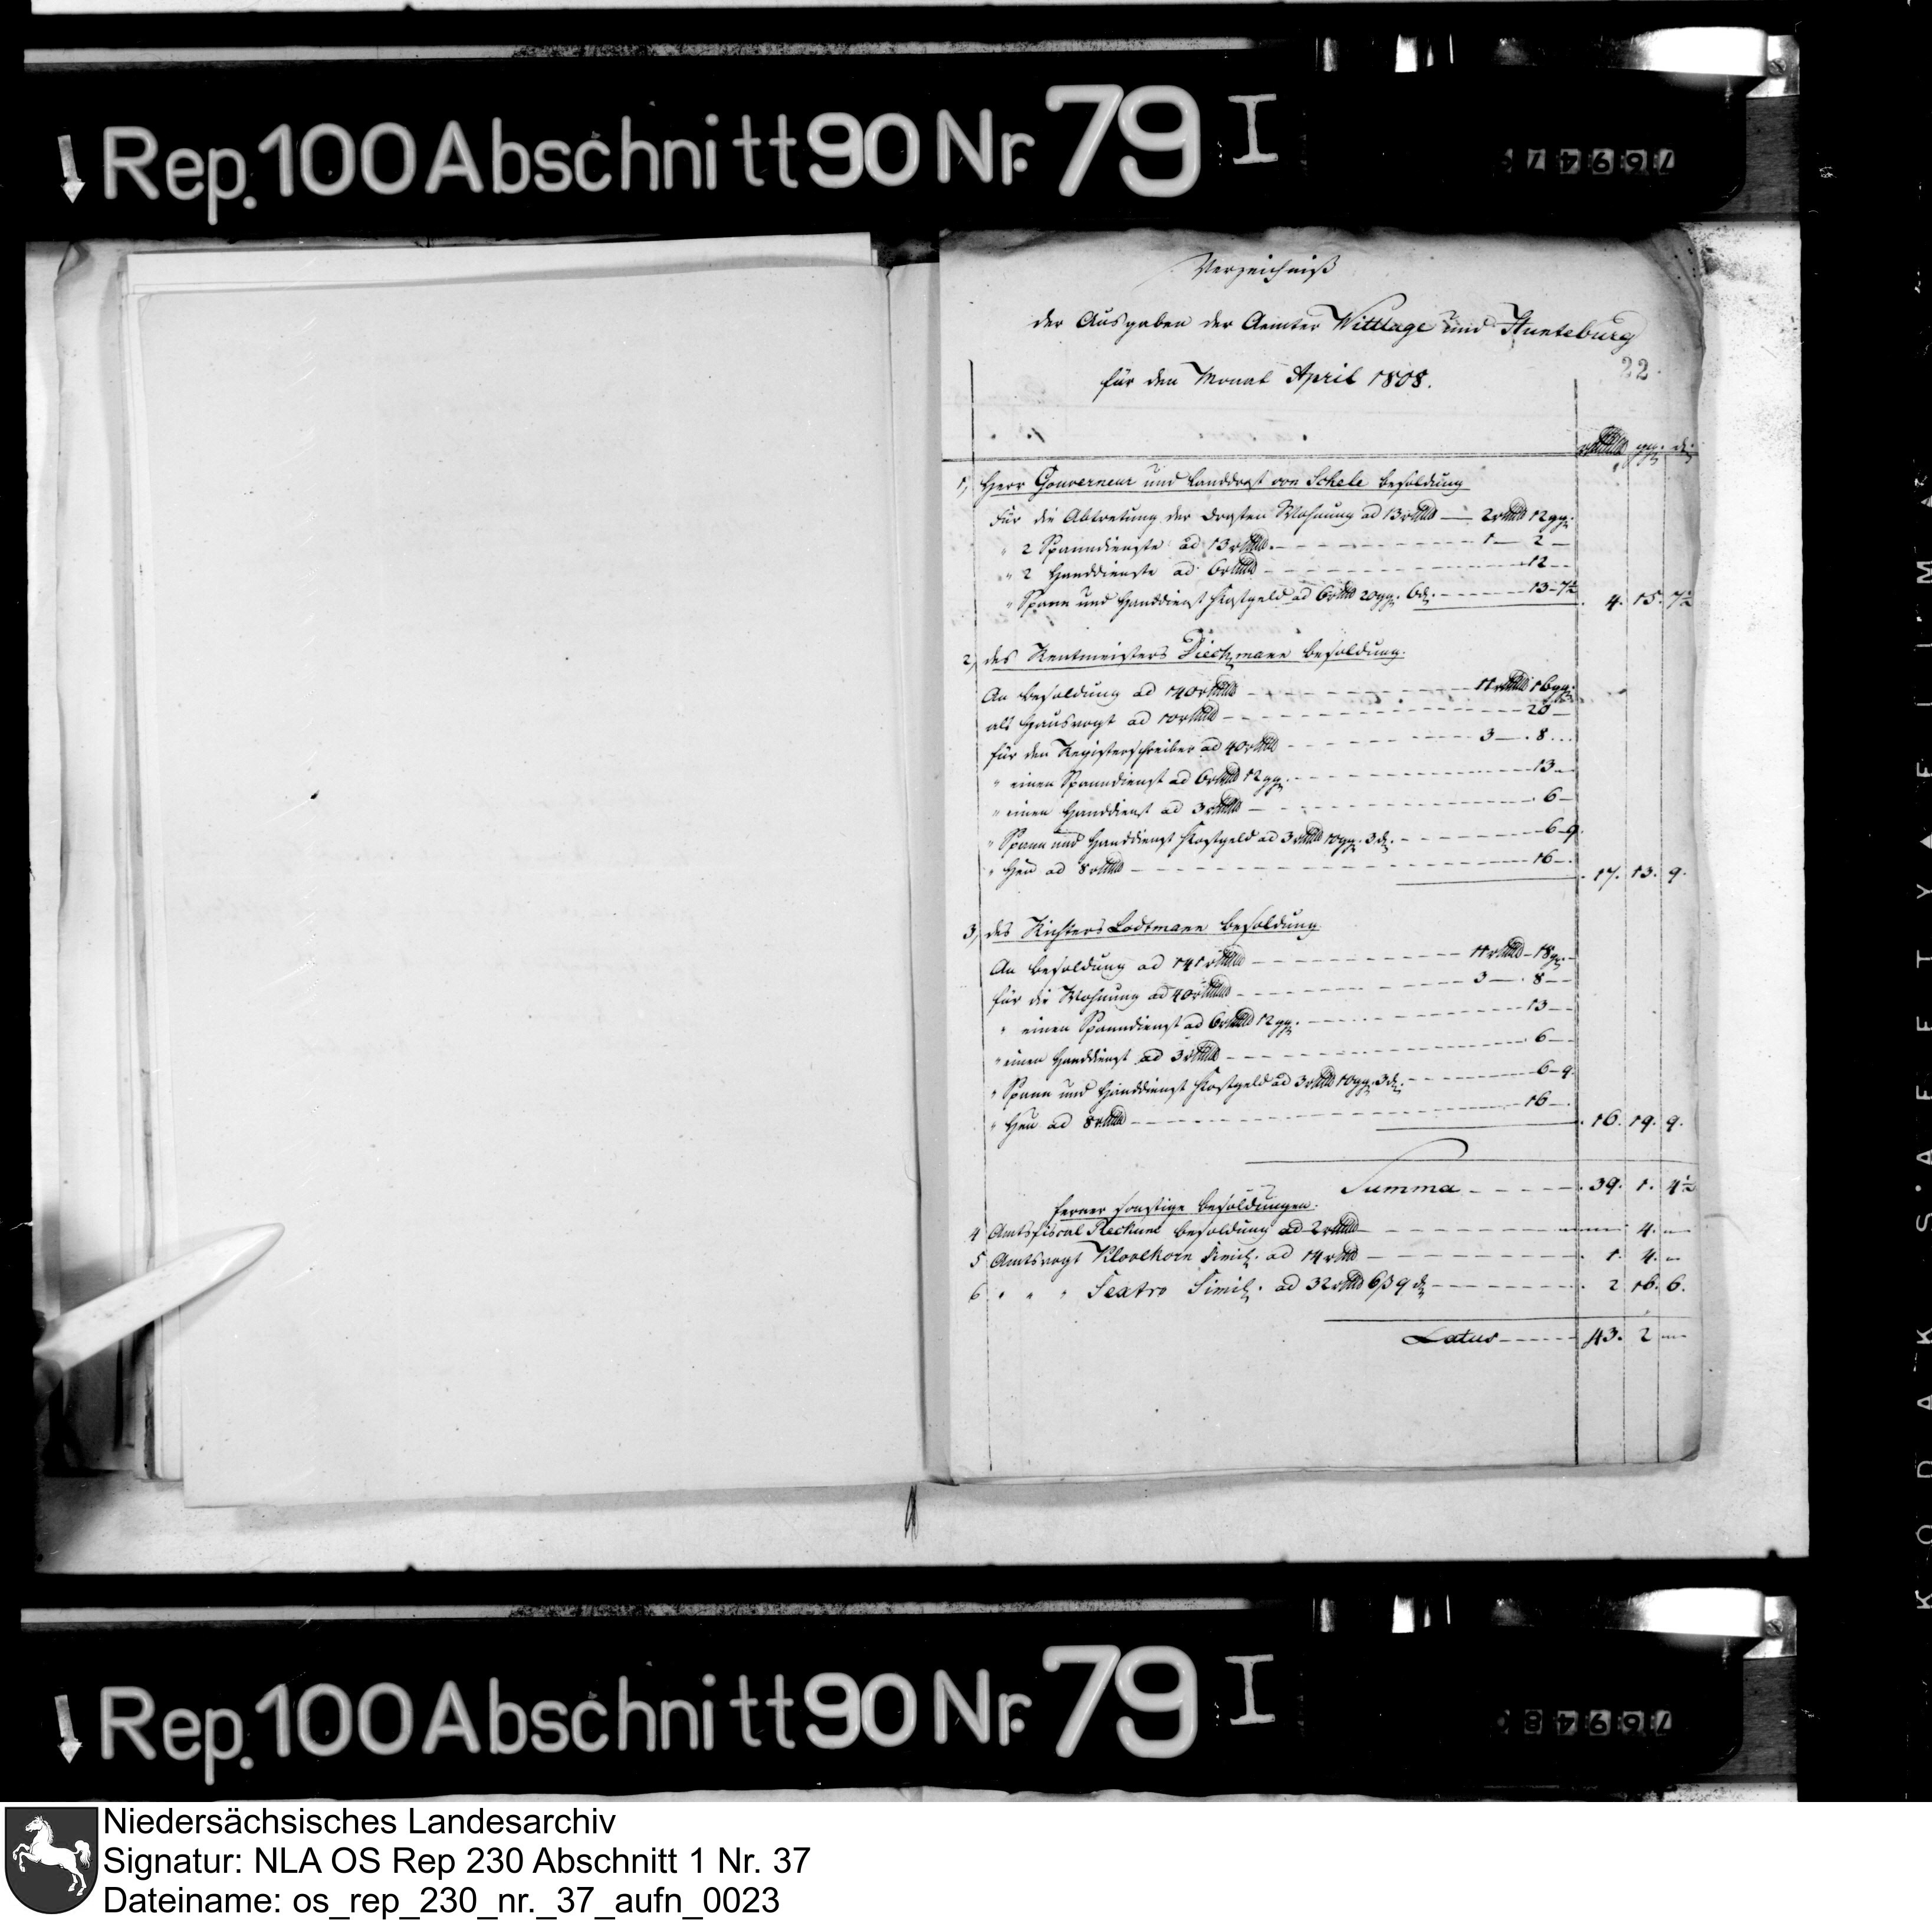 Rep. 100 Abschnitt 90 Nr. 79 I
Verzeichniß
der Ausgaben der Aemter Wittlage und Hunteburg
22.
für den Monat April 1808.
rthlr ggr. d.
1, Herr Gouverneur und Landdrost von Schele Besoldung
Für die Abtretung der Drosten Wohnung ad 13 rthlr — 2 rthlr 12 ggr.
" 2 Spanndienste ad 13 rthlr. - - - 1 — 2 —
" 2 Handdienste ad 6 rthlr - - - 12 - -
" Spann und Handdienst Kostgeld ad 6 rthlr 20 ggr. 6 d. - - - 13 - 7½ 4. 15. 7½
2, des Rentmeisters Dieckmann Besoldung.
An Besoldung ad 140 rthlr - - - 11 rthlr 16 ggr.
als Hausvogt ad 10 rthlr - - - 20 —
für den Registerschreiber ad 40 rthlr - - - 3 — . 8 . . .
" einen Spanndienst ad 6 rthlr 12 gg. - - - 13 - -
" einen Handdienst ad 3 rthlr - - - 6 —
" Spann und Handdienst Kostgeld ad 3 rthlr 10 gg. 3 d. - - - 6 - 9.
" Heu ad 8 rthlr - - - 16 - . 17. 13. 9.
3, des Richters Lodtmann Besoldung
An Besoldung ad 141 rthlr - - - 11 rthlr - 18 g. -
für die Wohnung ad 40 rthlr - - - 3 — . 8 - -
" einen Spanndienst ad 6 rthlr 12 gg. - - - 13 - -
" einen Handdienst ad 3 rthlr - - - 6 - -
" Spann und Handdienst Kostgeld ad 3 rthlr 10 gg. 3 d. - - - 6 - 9.
" Heu ad 8 rthlr - - - 16 - . 16. 19. 9.
Summa - - - 39. 1. 4½
ferner sonstige Besoldungen.
4 Amtsfiscal Besoldung ad 2 rthlr - - - 4. —
5 Amtsvogt Kloolkorn Simil. ad 14 rthlr - - - 1. 4. —
6 " " " Sextro Simil. ad 32 rthlr 6 ß 9 d - - - 2 16. 6.
Latus - - - 43. 2 —
Rep. 100 Abschnitt 90 Nr. 79 I
Niedersächsisches Landesarchiv
Signatur: NLA OS Rep 230 Abschnitt 1 Nr. 37
Dateiname: os_rep_230_nr._37_aufn_0023